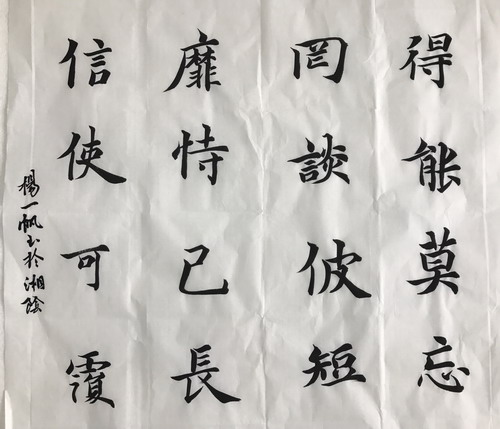 得能莫忘
罔談彼短
靡恃己長
信使可覆
楊一帆书於湘陰